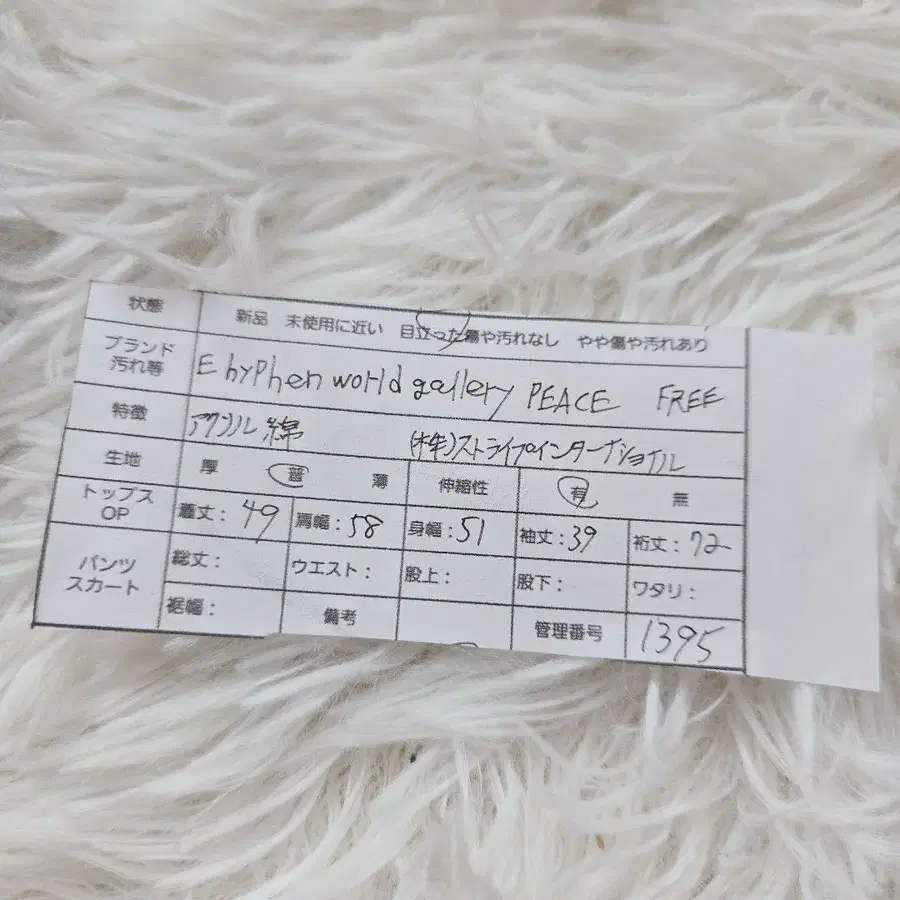 状態 新品 未使用に近い 目立った傷や汚れなし やや傷や汚れあり
ブランド 汚れ等 E hyphen world gallery PEACE FREE
特徴 アクリル 綿 (株)ストライプインターナショナル
生地 厚 普 薄 伸縮性 有 無
トップス OP 着丈:49 肩幅:58 身幅:51 袖丈:39 裄丈:72
パンツ スカート 総丈: ウエスト: 股上: 股下: ワタリ:
裾幅: 備考 管理番号 1395